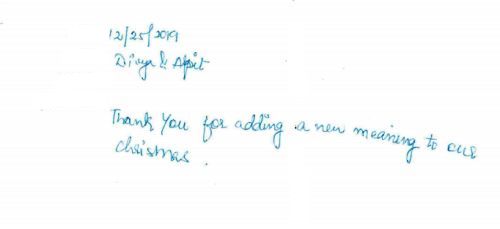 12/25/2019
Divya & Arpit
Thank You for adding a new meaning to our
christmas.